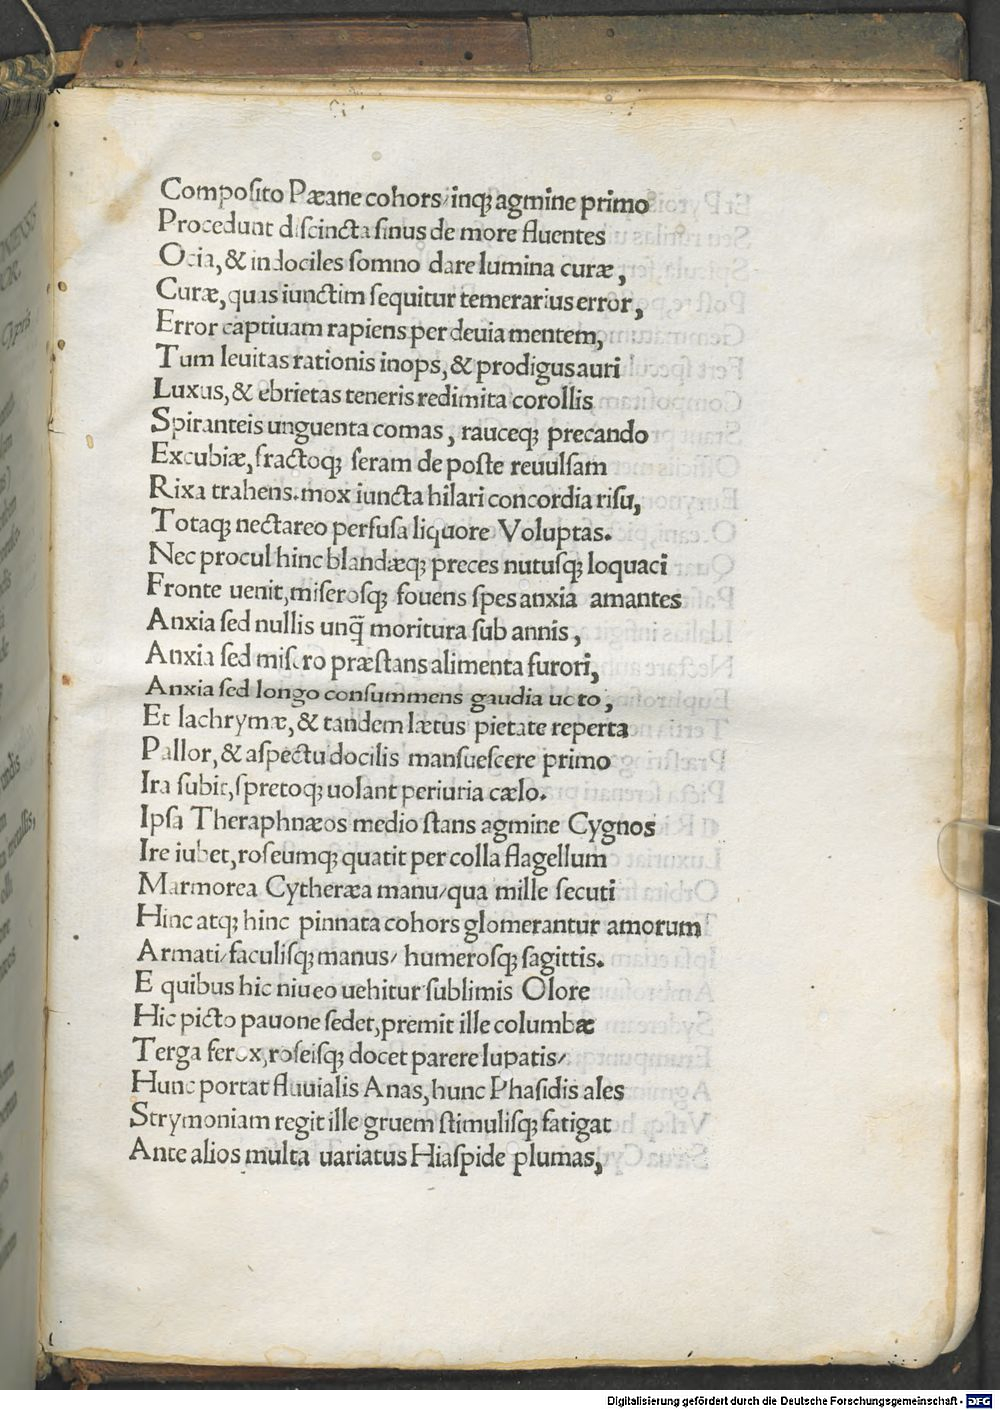 Composito Pæane cohors/inqꝫ agmine primo
Procedunt diſcincta ſinus de more fluentes
Ocia, & indociles ſomno dare lumina curæ,
Curæ, quas iunctim ſequitur temerarius error,
Error captiuam rapiens per deuia mentem,
Tum leuitas rationis inops, & prodigus auri
Luxus, & ebrietas teneris redimita corollis
Spiranteis unguenta comas, rauceqꝫ precando
Excubiæ, fractoqꝫ ſeram de poſte reuulſam
Rixa trahens. mox iuncta hilari concordia riſu,
Totaqꝫ nectareo perfuſa liquore Voluptas.
Nec procul hinc blandæqꝫ preces nutuſqꝫ loquaci
Fronte uenit, miſeroſqꝫ fouens ſpes anxia amantes
Anxia ſed nullis unq̄ moritura ſub annis,
Anxia ſed miſero præſtans alimenta furori,
Anxia ſed longo conſummens gaudia uoto,
Et lachrymæ, & tandem lætus pietate reperta
Pallor, & aſpectu docilis manſueſcere primo
Ira ſubit, ſpretoqꝫ uolant periuria cælo.
Ipſa Theraphnæos medio ſtans agmine Cygnos
Ire iubet, roſeumqꝫ quatit per colla flagellum
Marmorea Cytheræa manu/qua mille ſecuti
Hinc atqꝫ hinc pinnata cohors glomerantur amorum
Armati/faculiſqꝫ manus/ humeroſqꝫ ſagittis.
E quibus hic niueo uehitur ſublimis Olore
Hic picto pauone ſedet, premit ille columbæ
Terga ferox, roſeiſqꝫ docet parere lupatis/
Hunc portat fluuialis Anas, hunc Phaſidis ales
Strymoniam regit ille gruem ſtimuliſqꝫ fatigat
Ante alios multa uariatus Hiaſpide plumas,
Digitalisierung gefördert durch die Deutsche Forschungsgemeinschaft - DFG